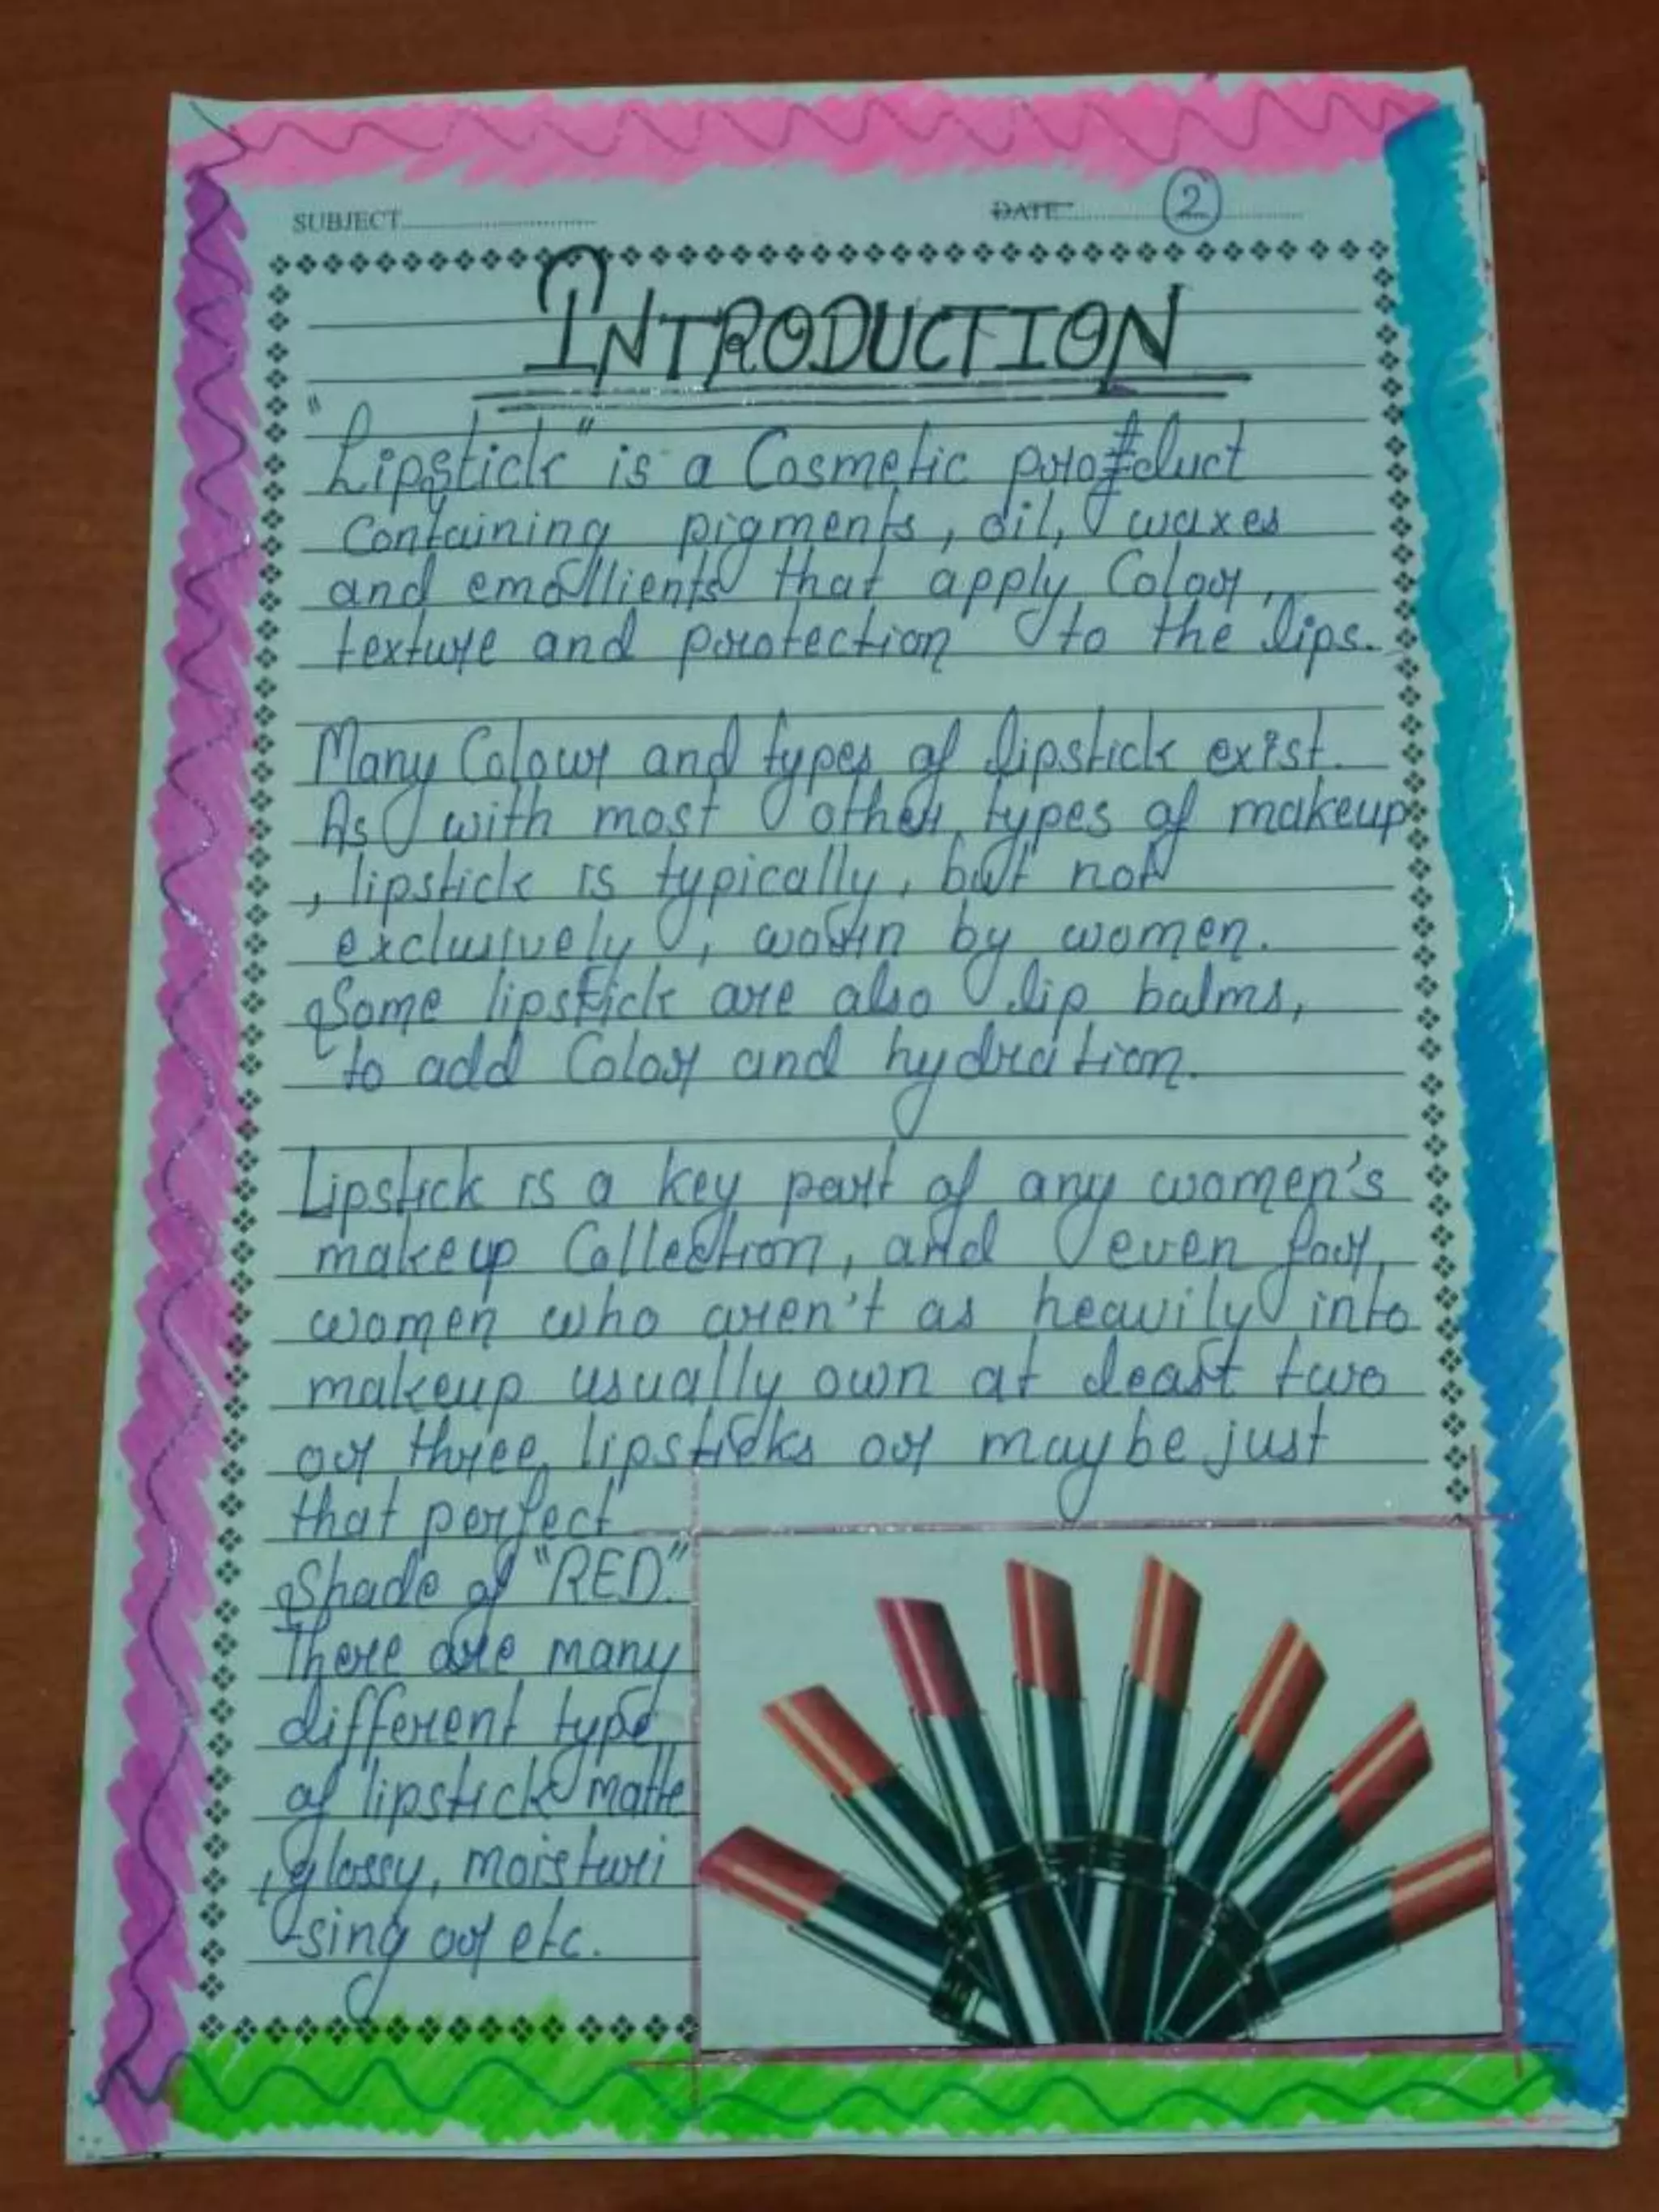 SUBJECT
DATE
2
INTRODUCTION
"Lipstick" is a Cosmetic product
Containing pigments, oil, waxes
and emollients that apply Color,
texture and protection to the lips.
Many Colour and types of lipstick exist.
As with most other types of makeup
, lipstick is typically, but not
exclusively, worn by women.
Some lipstick are also lip balms,
to add Color and hydration.
Lipstick is a key part of any women's
makeup Collection, and even for
women who aren't as heavily into
makeup usually own at least two
or three lipsticks or maybe just
that perfect
Shade of "RED."
There are many
different type
of lipstick matte
, glossy, moisturi
-sing or etc.